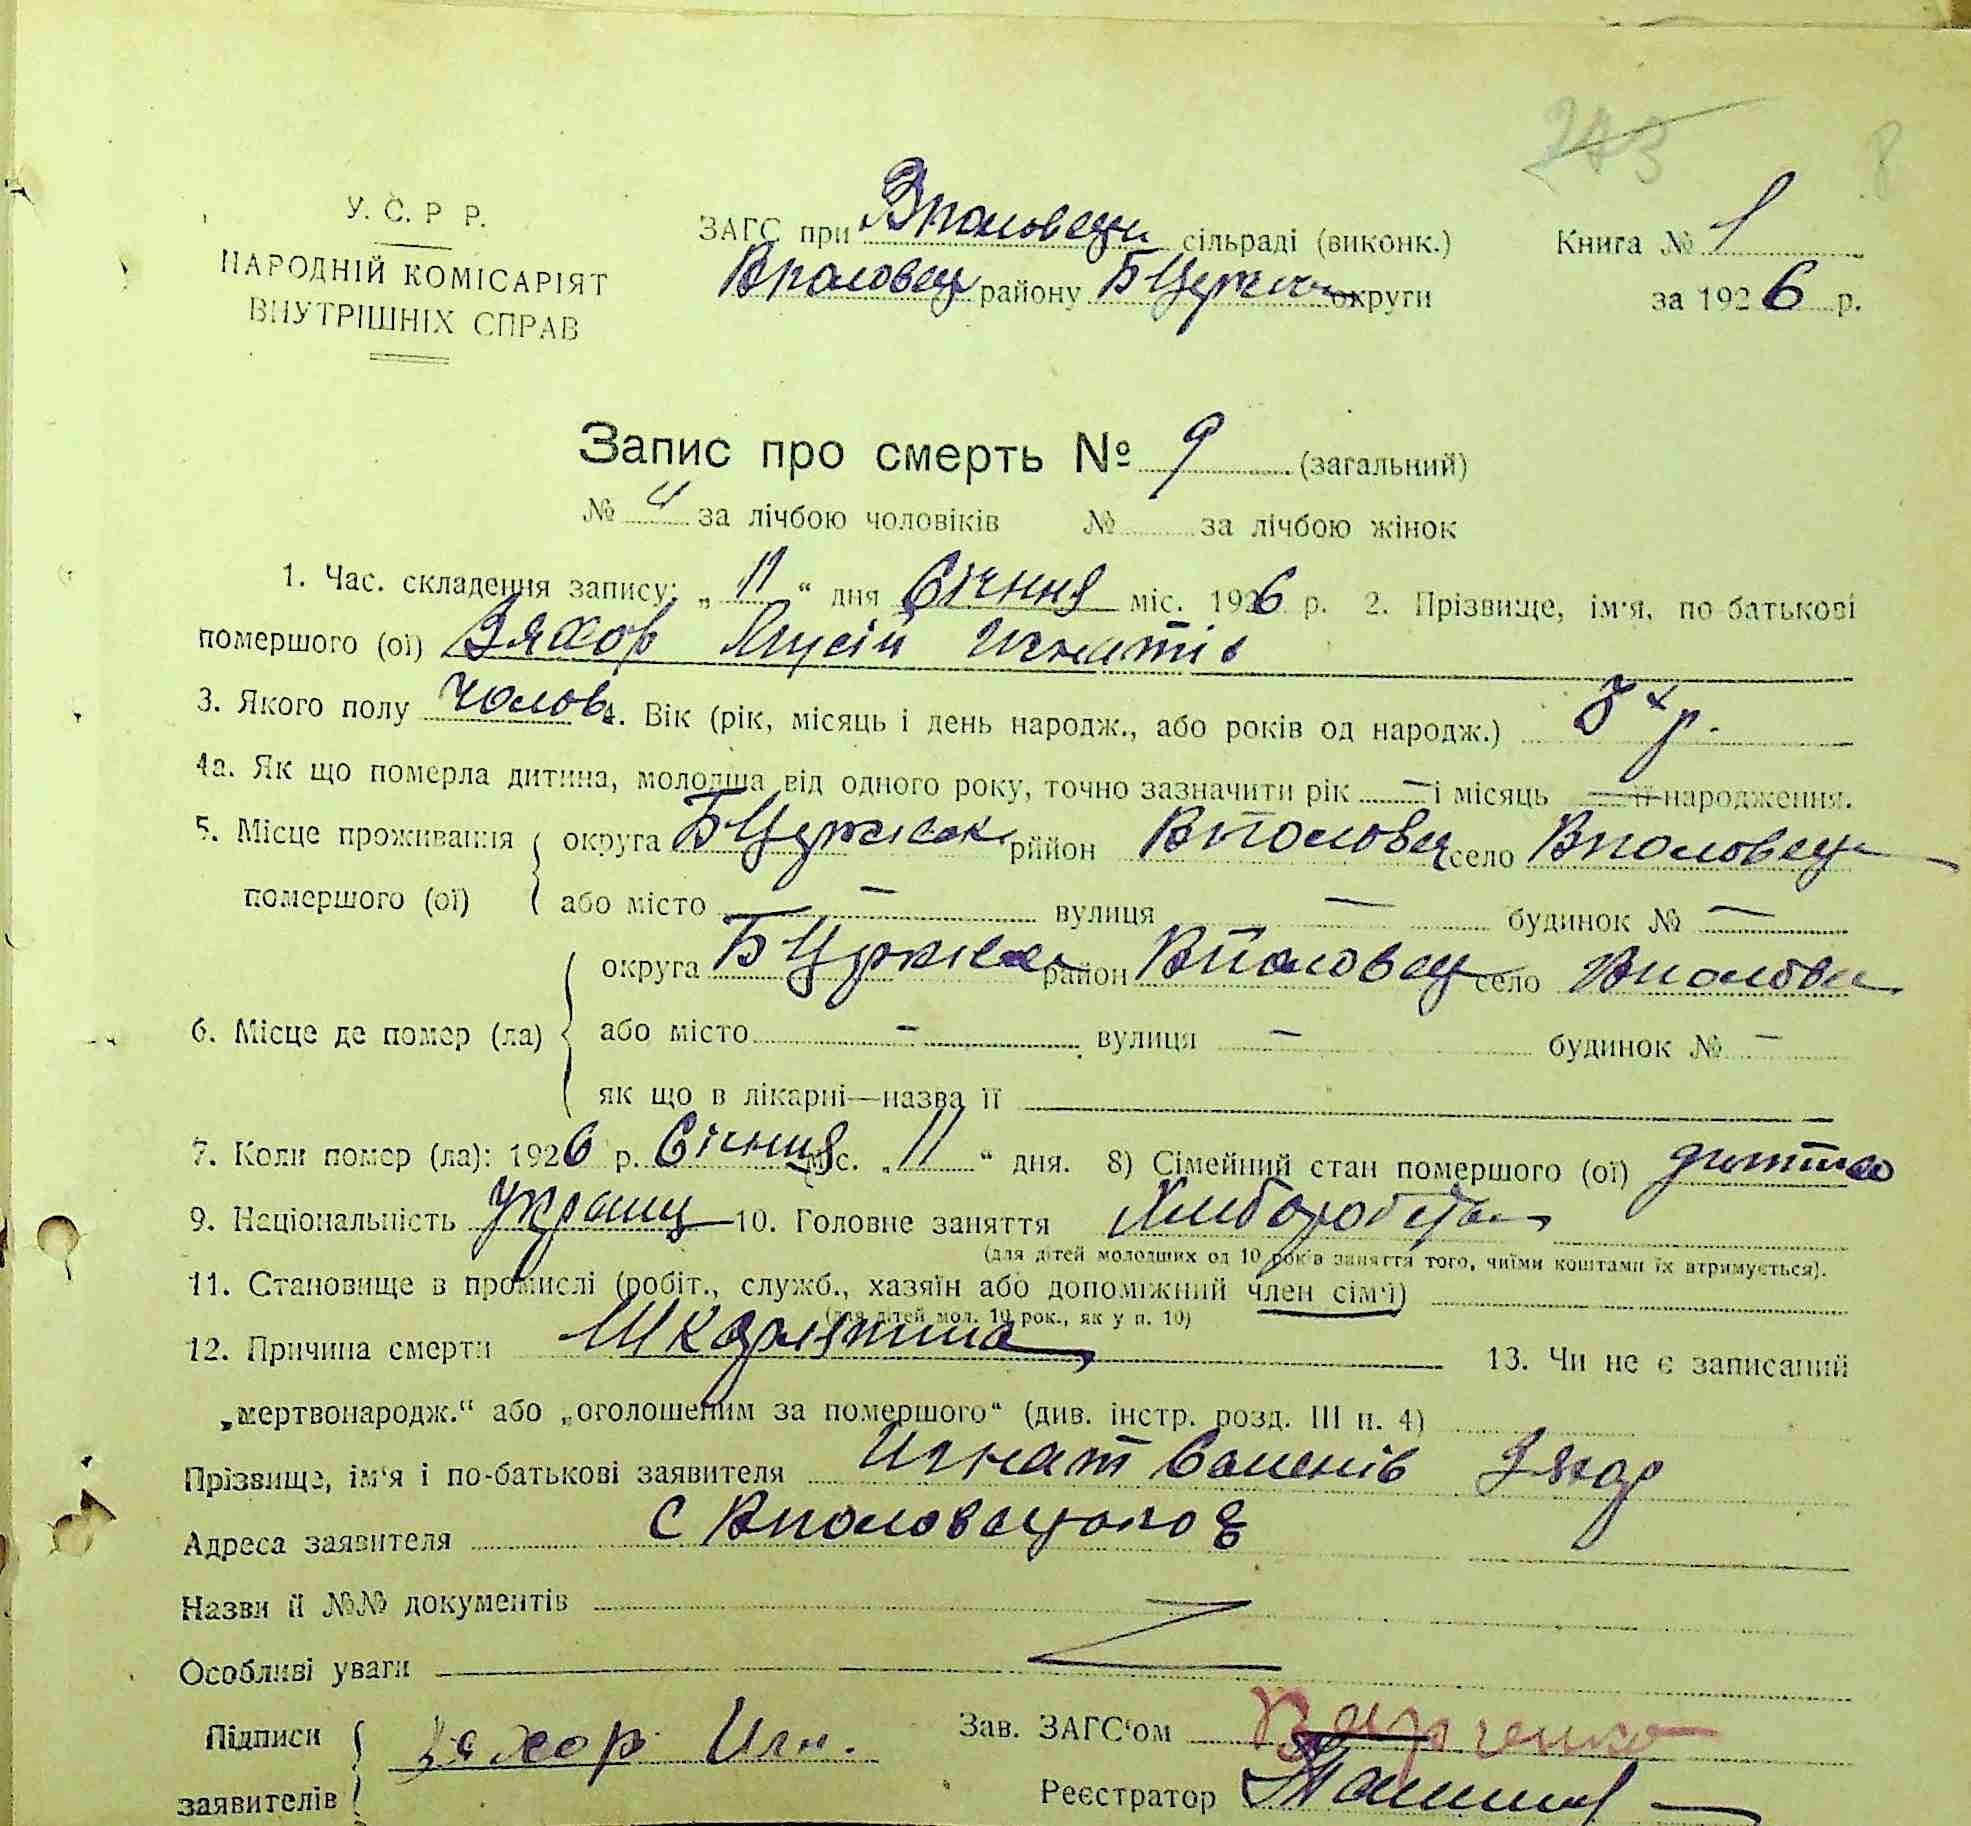 243 8
У. С. Р Р.
НАРОДНІЙ КОМІСАРІЯТ
ВНУТРІШНІХ СПРАВ
ЗАГС при Вполовецк сільраді (виконк.) Книга № 1
Вполовец району БЦерков округи за 1926 р.
Запис про смерть № 9 (загальний)
№ 4 за лічбою чоловіків № за лічбою жінок
1. Час. складення запису: „ 11 “ дня Січня міс. 1926 р. 2. Прізвище, ім'я, по батькові
помершого (ої) Зяхор Мусій Игнатів
3. Якого полу чолов 4. Вік (рік, місяць і день народж., або років од народж.) р.
4а. Як що померла дитина, молодша від одного року, точно зазначити рік — і місяць — її народження.
5. Місце проживання округа БЦерківск район Вполовец село Вполовец
помершого (ої) або місто — вулиця — будинок № —
округа БЦерківск район Вполовец село Вполовец
6. Місце де помер (ла) або місто - вулиця — будинок № —
як що в лікарні—назва її —
7. Коли помер (ла): 1926 р. Січня міс. „ 11 “ дня. 8) Сімейний стан помершого (ої)
9. Національність Украинц 10. Головне заняття Хлиборобство
(для дітей молодших од 10 років заняття того, чиїми коштами їх втримується).
11. Становище в промислі (робіт., служб., хазяїн або допоміжний член сім'ї)
(для дітей мол. 10 рок., як у п. 10)
12. Причина смерти Шкарлятина 13. Чи не є записаний
„мертвонародж.“ або „оголошеним за помершого“ (див. інстр. розд. III п. 4)
Прізвище, ім'я і по-батькові заявителя Игнат Зяхор
Адреса заявителя с Вполовецьке
Назви й №№ документів
Особливі уваги
Підписи Зяхор Игн. Зав. ЗАГС'ом
заявителів Реєстратор